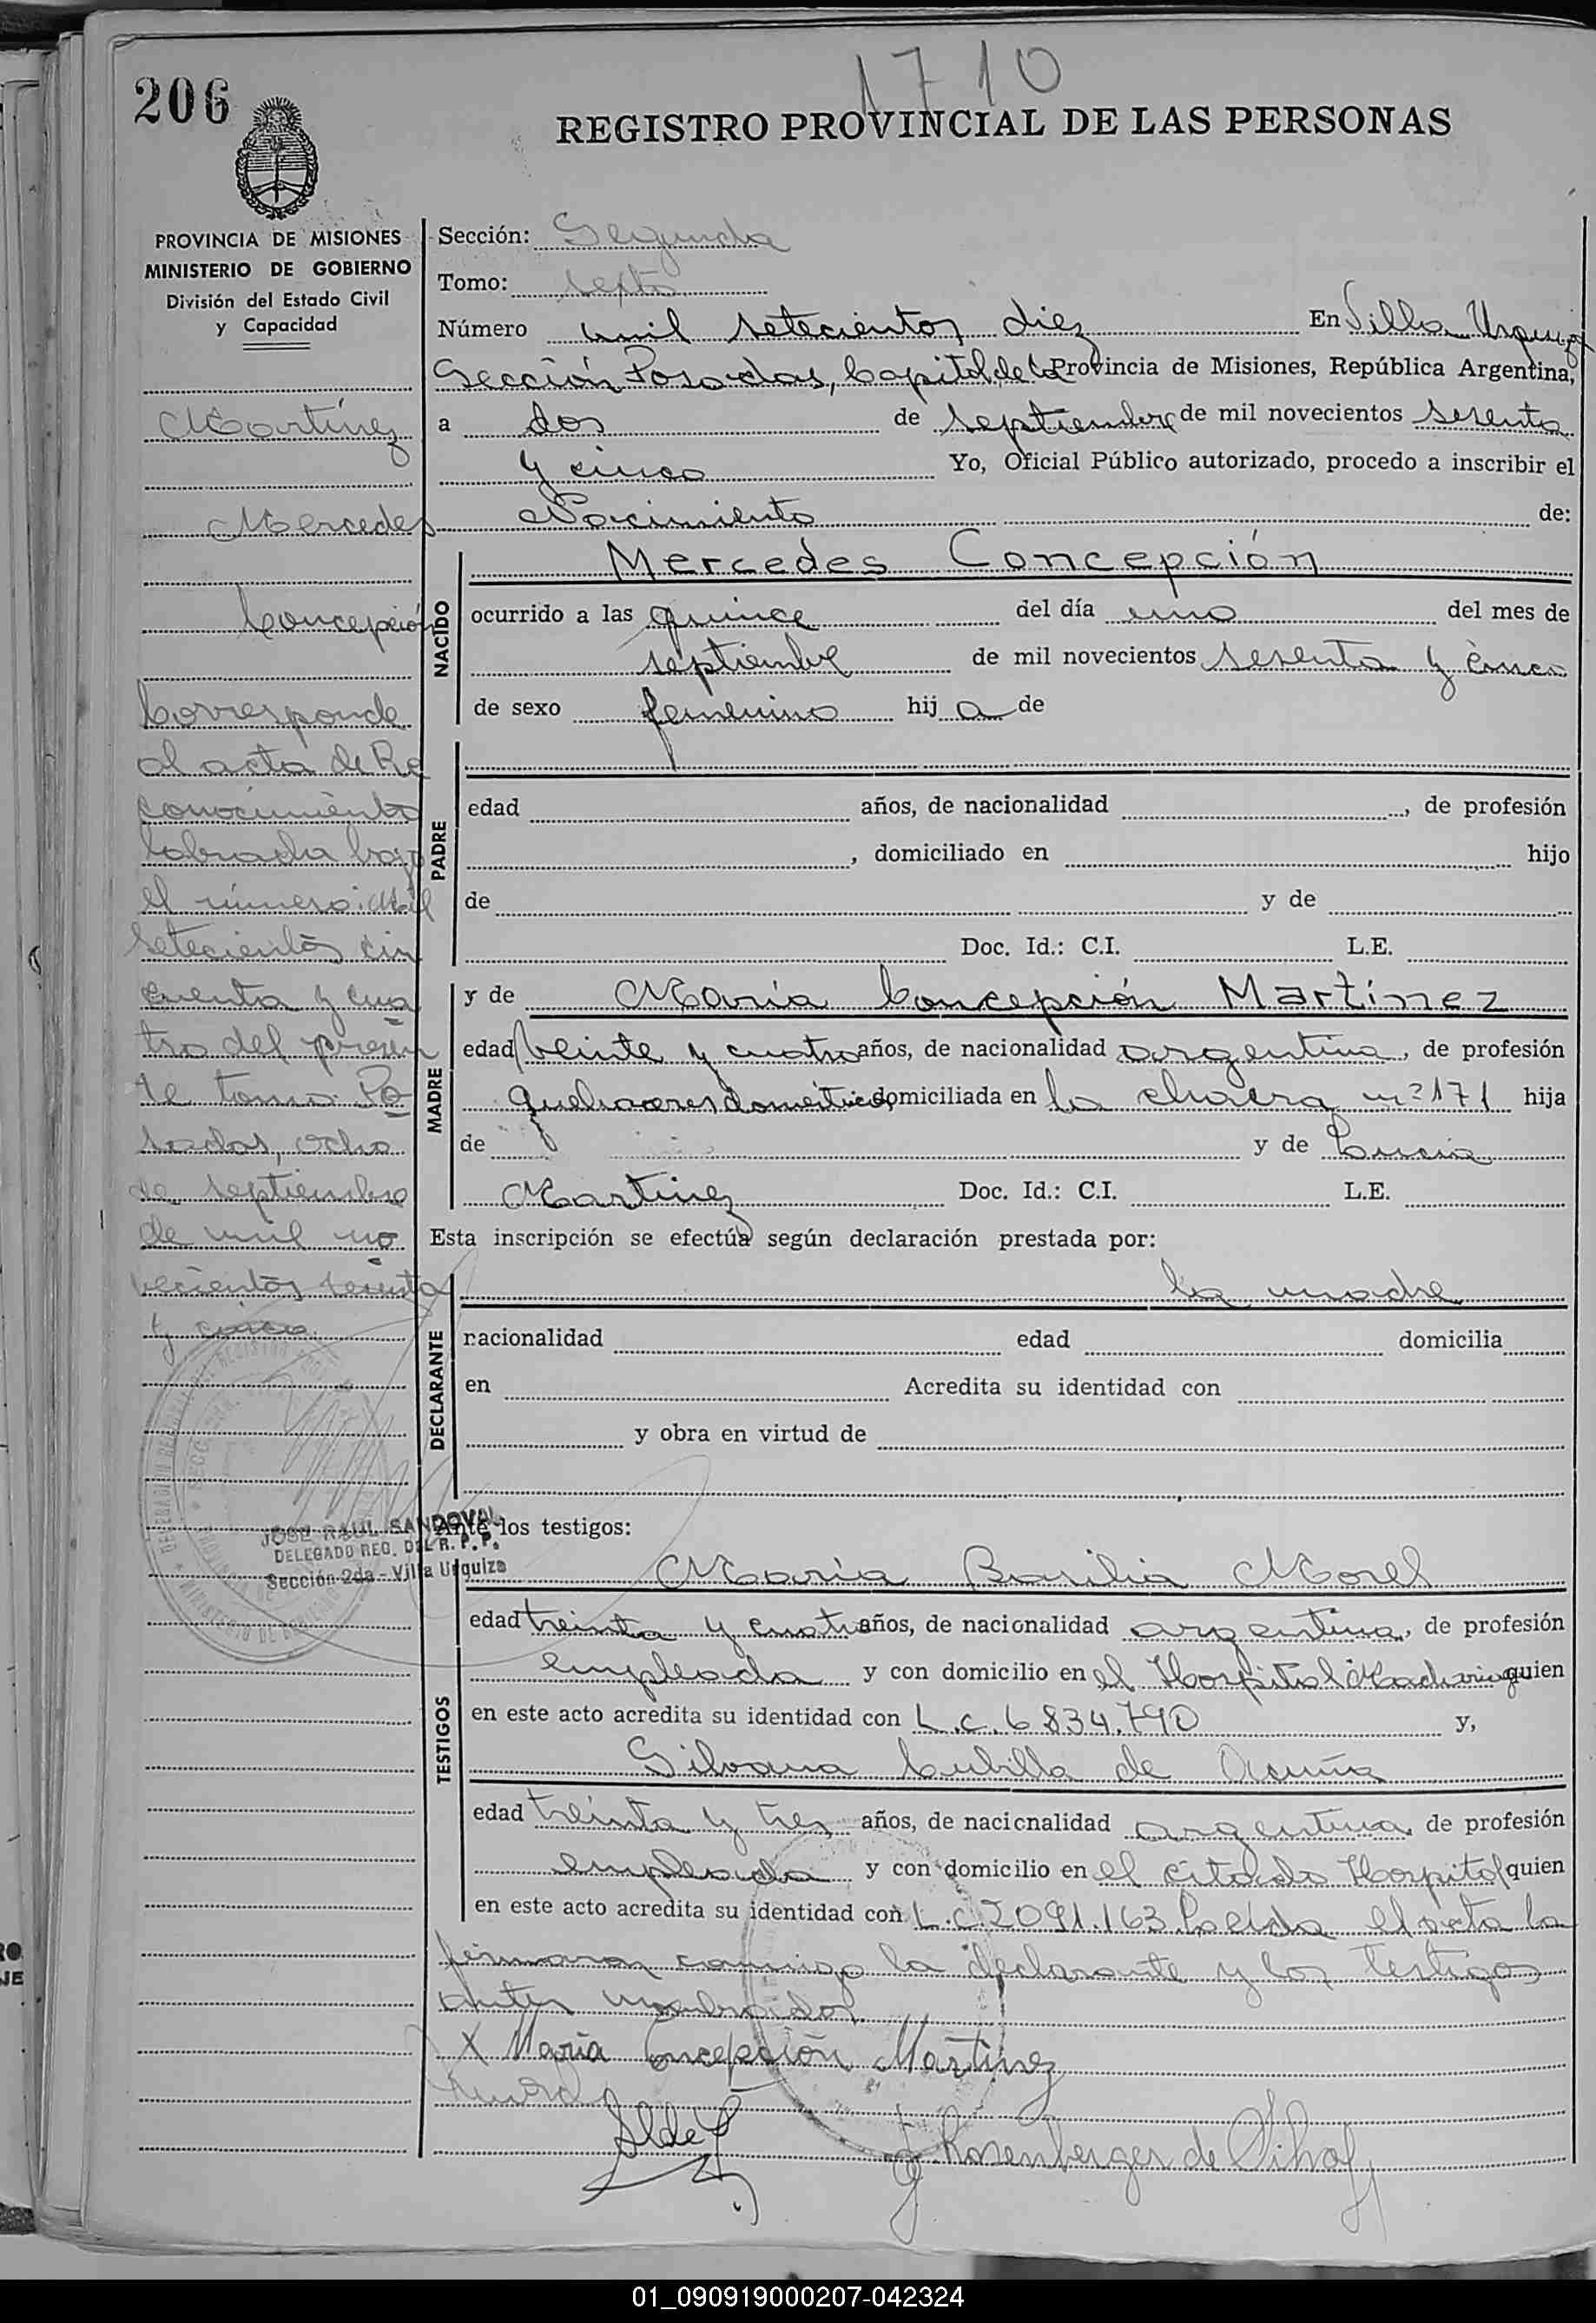 1710
206
REGISTRO PROVINCIAL DE LAS PERSONAS
PROVINCIA DE MISIONES
MINISTERIO DE GOBIERNO
División del Estado Civil
y Capacidad
Martínez
Mercedes
Concepción
Corresponde
al acta de Re
conocimiento
labrada bajo
el número: Mil
setecientos cin
cuenta y cua
tro del presen
te tomo. Po
sadas, ocho
de septiembre
de mil no
vecientos sesenta
y cinco.
JOSE RAUL SANDOVAL
DELEGADO REG. DEL R. P. P.
Sección 2da - Villa Urquiza
Sección: Segunda
Tomo: Sexto
Número mil setecientos diez En Villa Urquiza
Sección Posadas, Capital de la Provincia de Misiones, República Argentina,
a dos de septiembre de mil novecientos sesenta
y cinco Yo, Oficial Público autorizado, procedo a inscribir el
Nacimiento de:
NACIDO
Mercedes Concepción
ocurrido a las quince del día uno del mes de
septiembre de mil novecientos sesenta y cinco
de sexo femenino hij a de
PADRE
edad años, de nacionalidad , de profesión
, domiciliado en hijo
de y de
Doc. Id.: C.I. L.E.
MADRE
y de María Concepción Martínez
edad veinte y cuatro años, de nacionalidad argentina, de profesión
quehaceres domésticos, domiciliada en la chacra nº 171 hija
de y de Lucía
Martinez Doc. Id.: C.I. L.E.
Esta inscripción se efectúa según declaración prestada por:
DECLARANTE
la madre
nacionalidad edad domicilia
en Acredita su identidad con
y obra en virtud de
Ante los testigos:
TESTIGOS
María Basilia Morel
edad treinta y cuatro años, de nacionalidad argentina, de profesión
empleada y con domicilio en el Hospital Madariaga quien
en este acto acredita su identidad con L.C. 6834.790 y,
Silvana Cubilla de Acuña
edad treinta y tres años, de nacionalidad argentina, de profesión
empleada y con domicilio en el citado Hospital quien
en este acto acredita su identidad con L.C. 2091.163 Leída el acta la
firman conmigo la declarante y los testigos
antes nombrados.
X María Concepción Martínez
Rosenberger de
01_090919000207-042324